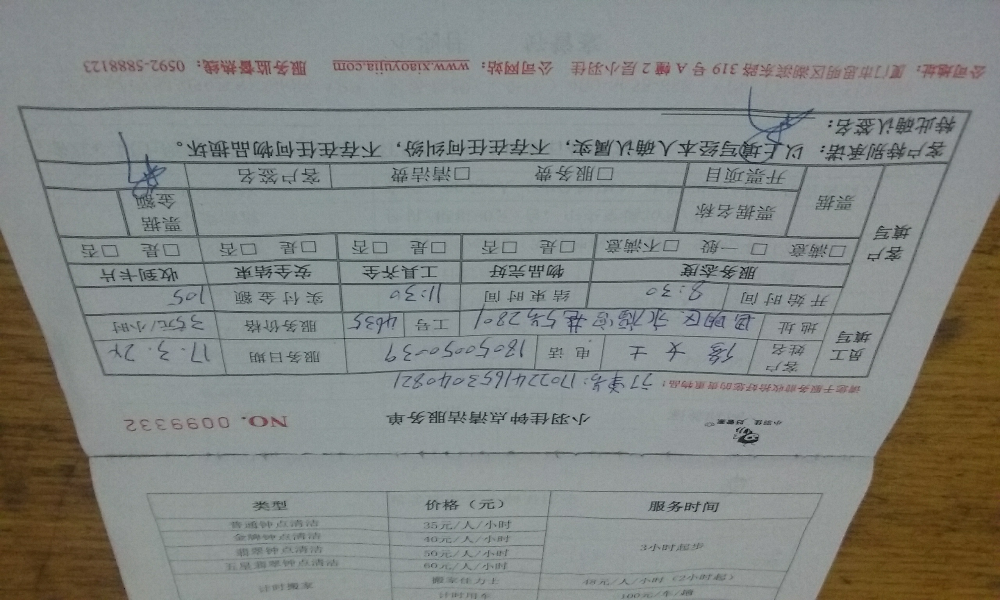 小羽佳钟点清洁服务单
NO. 0099332
请您于服务前收拾好您的贵重物品!
订单号:170224165304082
员工填写
客户姓名 女士 电话 18050050039 服务日期 17.3.24
地址 思明区 工号 4635 服务价格 35元/小时
开始时间 8:30 结束时间 11:30 实付金额 105
客户填写
服务态度 物品完好 工具齐全 安全结束 收到卡片
□满意 □一般 □不满意 □是 □否 □是 □否 □是 □否 □是 □否
票据 票据名称 票据金额
开票项目 □服务费 □清洁费 客户签名
客户特别承诺:以上填写经本人确认属实,不存在任何纠纷,不存在任何物品损坏。
特此确认签名:
公司地址:厦门市思明区湖滨东路 319 号 A 幢 2 层小羽佳 公司网站:www.xiaoyujia.com 服务监督热线:0592-5888123
类型 价格(元) 服务时间
普通钟点清洁 35元/人/小时 3小时起步
金牌钟点清洁 40元/人/小时
翡翠钟点清洁 50元/人/小时
五星翡翠钟点清洁 60元/人/小时
计时搬家 搬家佳力士 48元/人/小时(2小时起)
计时用车 100元/车/趟